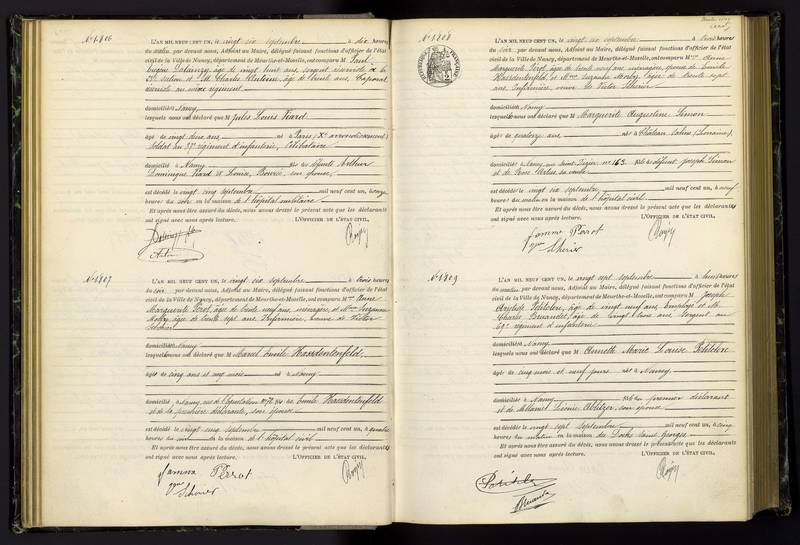 N° 1806
L'AN MIL NEUF CENT UN, le vingt six septembre à dix heures
du matin, par devant nous, Adjoint au Maire, délégué faisant fonctions d'officier de l'état
civil de la Ville de Nancy, département de Meurthe-et-Moselle, ont comparu M Paul
âgé de vingt huit ans, sergent
section et M. Charles Antoine, âgé de trente ans, Caporal
au même régiment
domiciliés à Nancy
lesquels nous ont déclaré que M Jules Louis Viard
âgé de vingt deux ans né à Paris (X° arrondissement)
soldat au 37° régiment d'infanterie, célibataire
domicilié à Nancy fils de défunts Arthur
Dominique Viard et Louise, son épouse
est décédé le vingt cinq septembre mil neuf cent un, à onze
heures du soir en la maison de l'hôpital militaire
Et après nous être assuré du décès, nous avons dressé le présent acte que les déclarants
ont signé avec nous après lecture. L'OFFICIER DE L'ÉTAT CIVIL,
N° 1807
L'AN MIL NEUF CENT UN, le vingt six septembre à trois heures
du soir, par devant nous, Adjoint au Maire, délégué faisant fonctions d'officier de l'état
civil de la Ville de Nancy, département de Meurthe-et-Moselle, ont comparu M Anne
Marguerite Perot, âgée de trente neuf ans, ménagère, et Mme Suzanne
âgée de trente sept ans, Infirmière, veuve de Victor
domiciliés à Nancy
lesquels nous ont déclaré que M Marcel Emile Haardentenfeld
âgé de cinq ans et cinq mois né à Nancy
domicilié à Nancy, rue fils de Emile Haardentenfeld
et de la première déclarante, son épouse
est décédé le vingt cinq septembre mil neuf cent un, à quatre
heures du soir en la maison de l'hôpital civil
Et après nous être assuré du décès, nous avons dressé le présent acte que les déclarants
ont signé avec nous après lecture. L'OFFICIER DE L'ÉTAT CIVIL,
femme Perot
N° 1808
L'AN MIL NEUF CENT UN, le vingt six septembre à trois heures
du soir, par devant nous, Adjoint au Maire, délégué faisant fonctions d'officier de l'état
civil de la Ville de Nancy, département de Meurthe-et-Moselle, ont comparu Mme Anne
Marguerite Perot, âgée de trente neuf ans, ménagère, épouse de Emile
Haardentenfeld, et Mme Suzanne âgée de trente sept
ans, Infirmière, veuve de Victor
domiciliés à Nancy
lesquels nous ont déclaré que M Marguerite Augustine Simon
âgée de quatorze ans née à Château Salins (Lorraine)
domiciliée à Nancy, rue Saint Dizier n° 163 fille de défunt Joseph Simon
et de Rose sa veuve
est décédée le vingt six septembre mil neuf cent un, à neuf
heures du matin en la maison de l'hôpital civil
Et après nous être assuré du décès, nous avons dressé le présent acte que les déclarants
ont signé avec nous après lecture. L'OFFICIER DE L'ÉTAT CIVIL,
femme Perot
N° 1809
L'AN MIL NEUF CENT UN, le vingt sept septembre à huit heures
du matin, par devant nous, Adjoint au Maire, délégué faisant fonctions d'officier de l'état
civil de la Ville de Nancy, département de Meurthe-et-Moselle, ont comparu M Joseph
âgé de vingt neuf ans, Employé et M.
Charles âgé de vingt trois ans, sergent au
69° régiment d'infanterie
domiciliés à Nancy
lesquels nous ont déclaré que M Annette Marie Louise
âgée de cinq mois et neuf jours née à Nancy
domiciliée à Nancy fille du premier déclarant
et de son épouse
est décédée le vingt sept septembre mil neuf cent un, à cinq
heures du matin en la maison
Et après nous être assuré du décès, nous avons dressé le présent acte que les déclarants
ont signé avec nous après lecture. L'OFFICIER DE L'ÉTAT CIVIL,